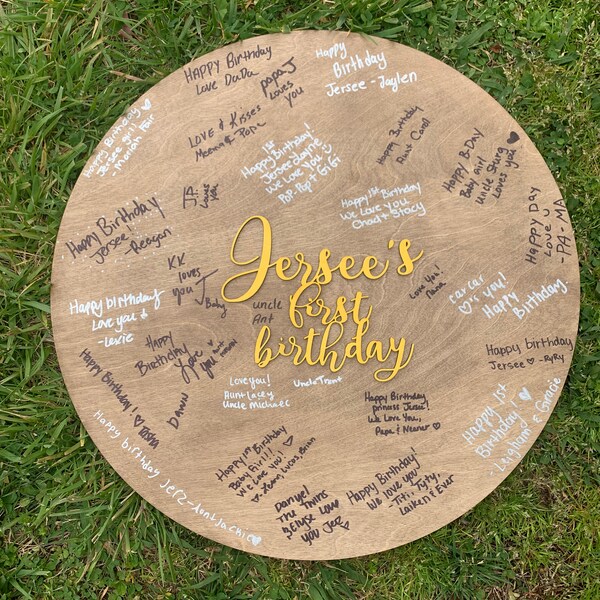 HAPPY BIRTHDAY
Love DADA
PAPA J
Loves
you
Happy
Birthday
Jersee - Jaylen
Happy Birthday
Jersee Girl!
LOVE & Kisses
Happy Birthday
Aunt Carol
1st
Happy Birthday!
Jersee Jayne
We Love You
POP-POP + GiGi
HAPPY B-DAY
Baby Girl
Uncle Stung
Loves you
Happy 1st Birthday
We Love You
Chad + Stacy
HAPPY DAY
LOVE
-PA-MA
Loves
Happy Birthday
Jersee!
-Reagan
KK
loves
you
J
Baby
Jersee's
first
birthday
Uncle
Ant
Love You!
Nana
car car
♡'s you!
Happy
Birthday
Happy birthday
Love you &
-Lexie
Happy
Birthday
Love
you
Happy Birthday
Jersee ♡ -RyRy
Happy Birthday!
♡ Tasha
DAWN
Love you!
Aunt Lacey
Uncle Michael
Uncle Trent
Happy Birthday
princess Jersee!
We Love You,
Papa & Neaner ♡
Happy 1st
Birthday!
-Leighann & Gracie
Happy birthday JerZ-Aunt Jackie ♡
Happy 1st Birthday
Baby Girl!!
We Love You!
Danyel
The Twins
& Elyse Love
you Jer
Happy Birthday!
We love you
-Titi, Tyty,
Laiken & Ever